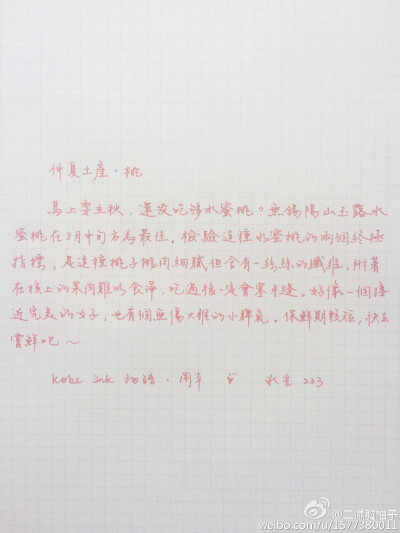 仲夏土產·桃
馬上要立秋，還沒吃夠水蜜桃？無錫陽山玉露水
蜜桃在8月中旬為最佳。檢驗這種水蜜桃的兩個終極
指標，是這種桃子桃肉細膩但含有一絲絲的纖維，附著
在核上的果肉難以食淨，吃過後一定會塞牙縫。好像一個接
近完美的女子，也有個無傷大雅的小脾氣。保鮮期較短，快去
嘗鮮吧～
Kobe ink 物語· 233
@二
weibo.com/u/1577380011